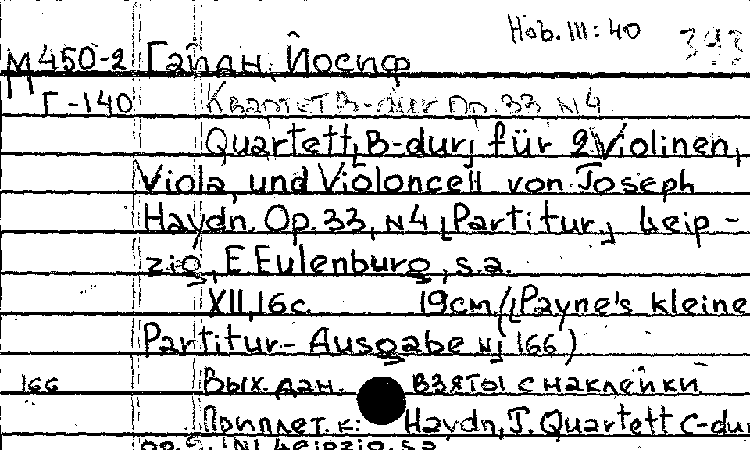 Hob. III: 40 393
М 450-2 Гайдн, Йосиф
П Г-140 Квартет B-dur Op. 33 N4.
Quartett [B-dur] für 2 Violinen,
Viola und Violoncell von Joseph
Haydn. Op. 33, N4 [Partitur] Leip-
zig, E. Eulenburg, s.a.
XII, 16 c. 19 см ([Payne's kleine
Partitur-Ausgabe N] 166)
166 Вых. дан. взяты с наклейки
Приплет. к: Haydn, J. Quartett C-dur